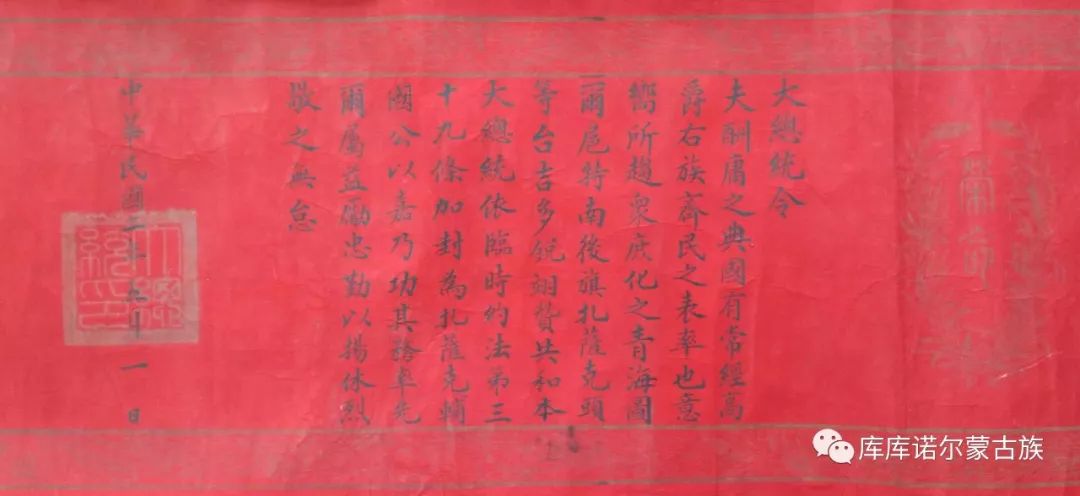 大總統令
夫酬庸之典國有常經高
爵右族齊民之表率也意
嚮所趨衆庶化之青海圖
爾扈特南後旗扎薩克頭
等台吉多銳翊贊共和本
大總統依臨時約法第三
十九條加封為扎薩克輔
國公以嘉乃功其務卓先
爾屬益勵忠勤以揚休烈
敬之無怠
中華民國二年五月一日
大總統印
库库诺尔蒙古族